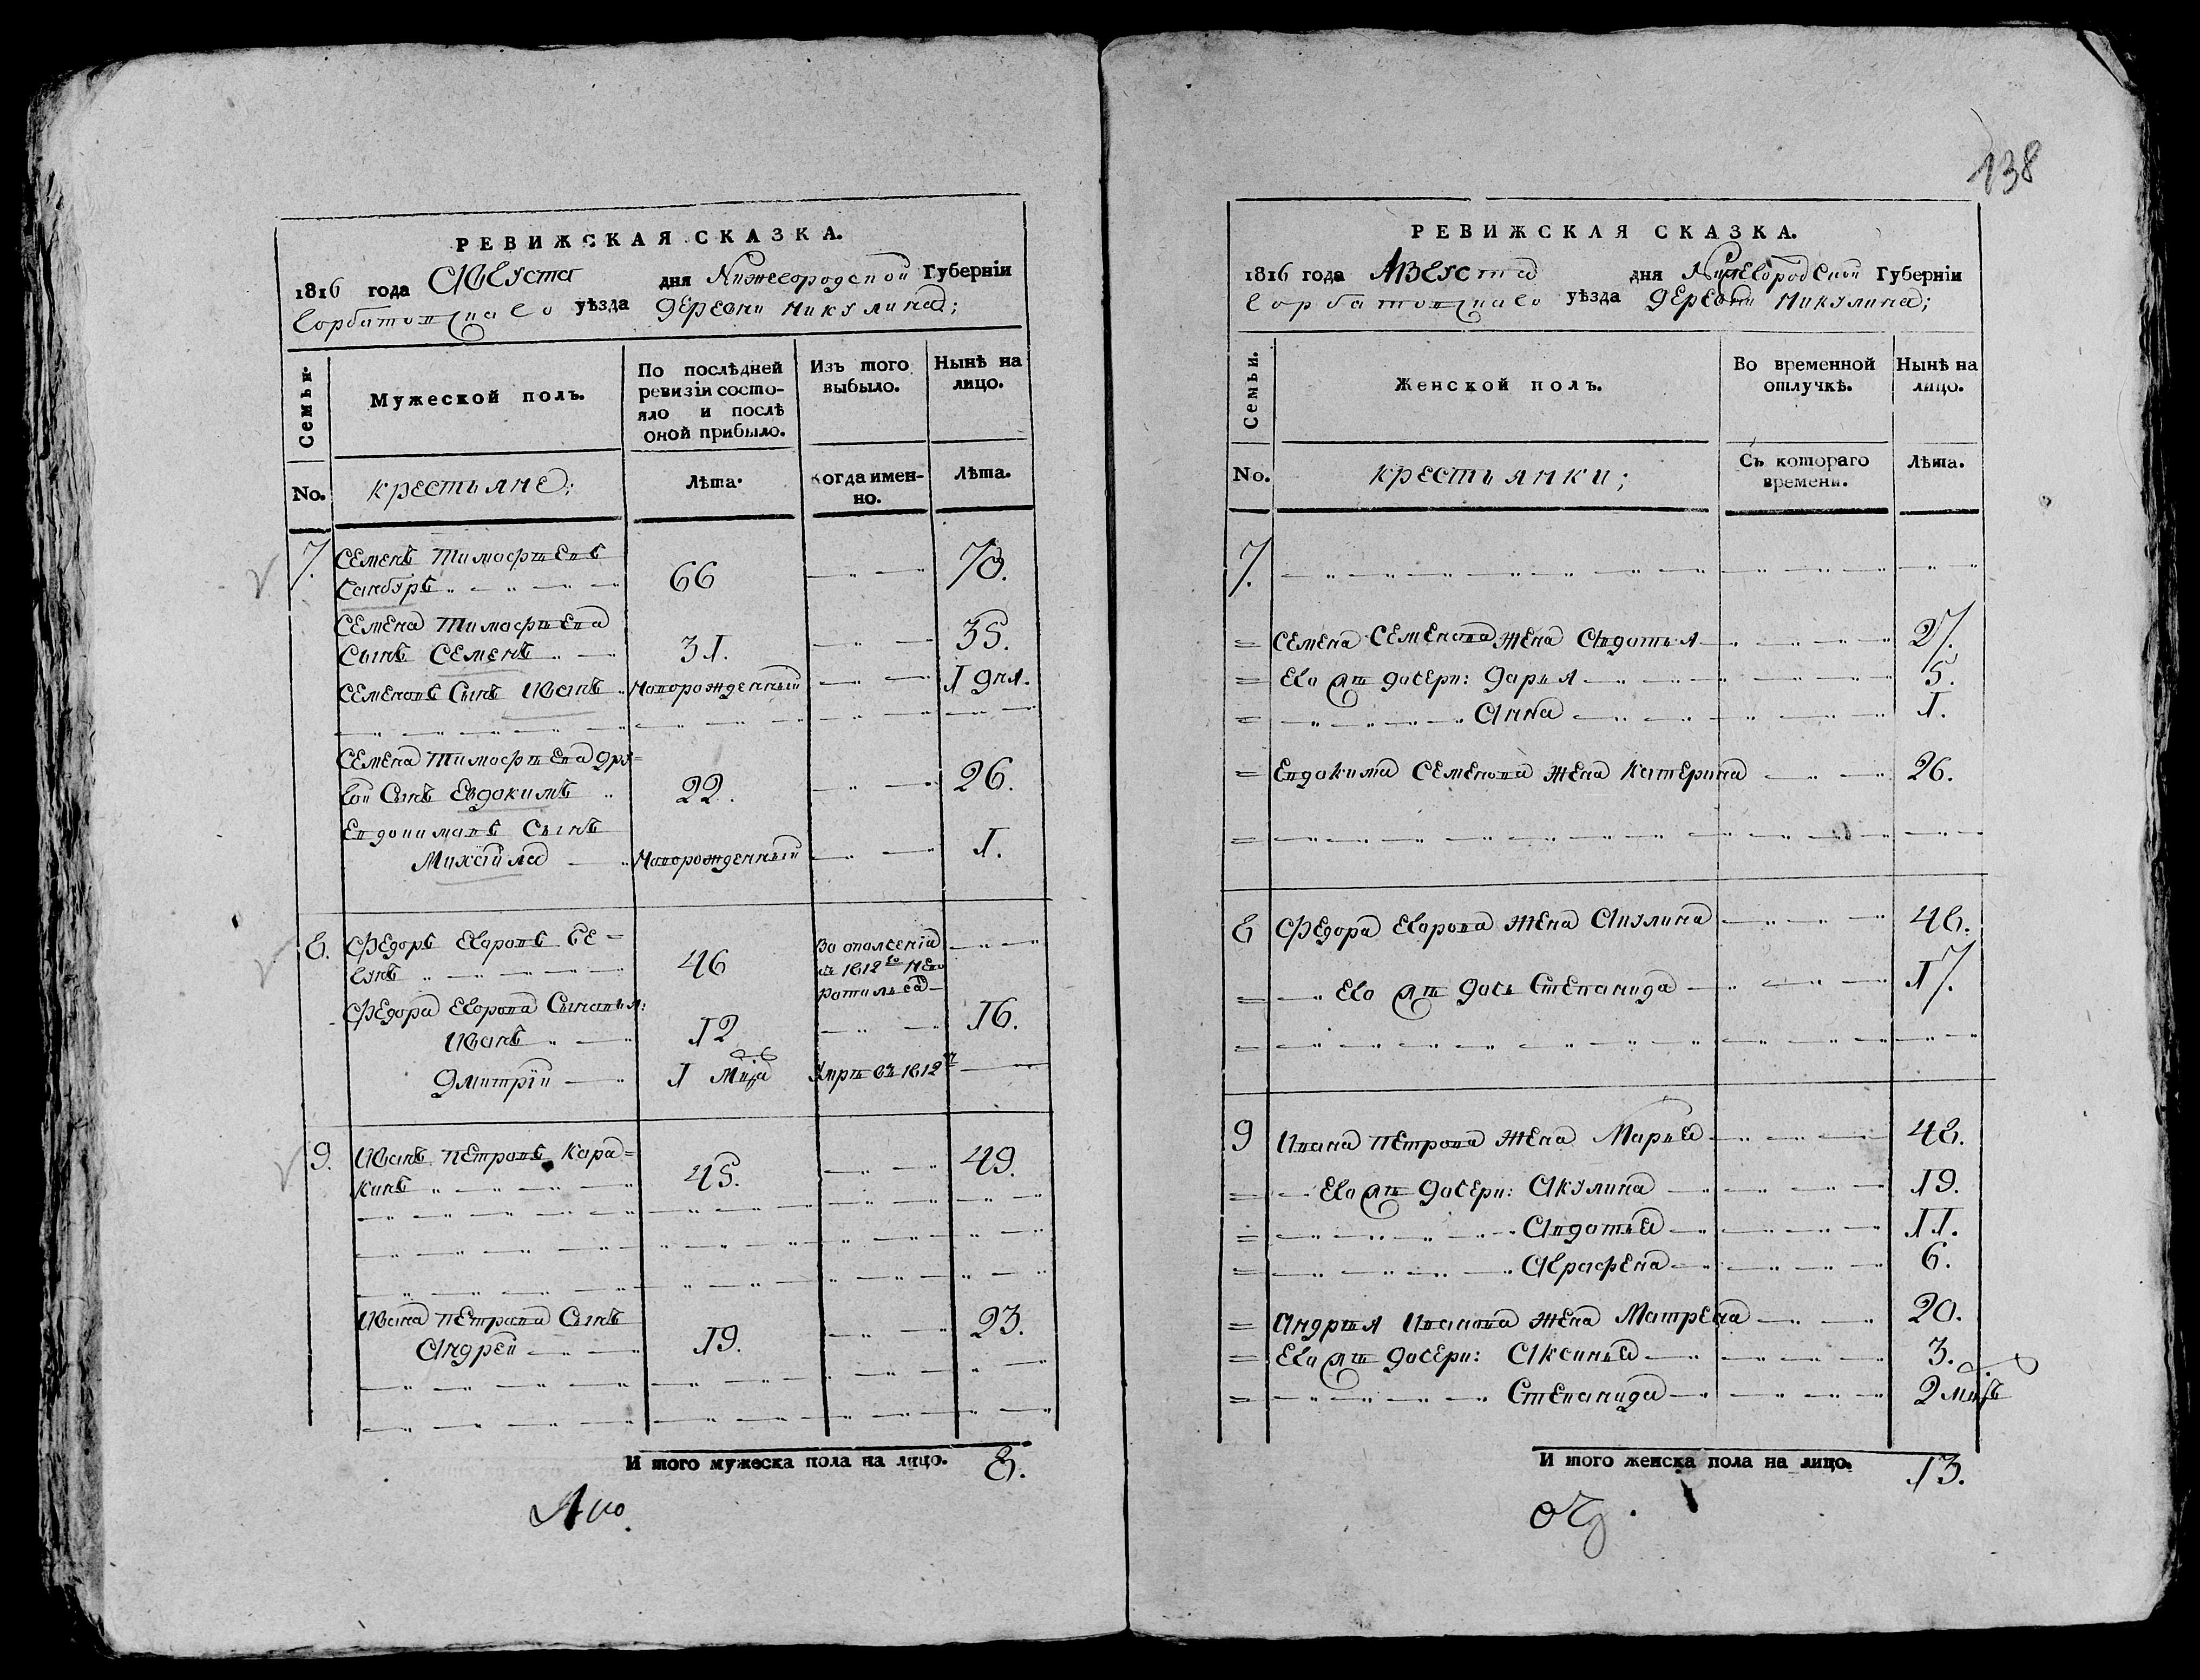 138
РЕВИЖСКАЯ СКАЗКА.
1816 года Августа дня Нижегородской Губерніи
Горбатовскаго уѣзда деревни Никулина;
Семьи.
Мужеской полъ.
По послѣдней ревизіи состо-
яло и послѣ
оной прибыло.
Изъ того выбыло.
Нынѣ на лицо.
No.
крестьяне;
Лѣта.
когда имен-
но.
Лѣта.
7. Семенъ Тимофѣевъ
66 70.
Семена Тимофѣева
Сынъ Семенъ 31. 35.
Семеновъ Сынъ Иванъ новорожденный 1 дня.
Семена Тимофѣева дру=
гой Сынъ Евдокимъ 22. 26.
Евдокимовъ Сынъ
Михайла новорожденный 1.
8. Федоръ Егоровъ Бе=
гунъ 46 Во ополченіи
в 1812го нево
ротился
Федора Егорова Сыновья:
Иванъ 12 16.
Дмитрій 1 Мца Умре въ 1812м
9. Иванъ Петровъ Кара=
кинъ 45. 49.
Ивана Петрова Сынъ
Андрей 19. 23.
И того мужеска пола на лицо. 8.
РЕВИЖСКАЯ СКАЗКА.
1816 года Августа дня Нижегородской Губерніи
Горбатовскаго уѣзда деревни Никулина;
Семьи.
Женской полъ.
Во временной отлучкѣ.
Нынѣ на лицо.
No.
крестьянки;
Съ котораго времени.
Лѣта.
7.
Семена Семенова жена Авдотья 27.
Ево же дочери: Дарья 5.
Анна 1.
Евдокима Семенова жена Катерина 26.
8 Федора Егорова жена Акулина 48.
Ево же дочь Степанида 17.
9 Ивана Петрова жена Марья 48.
Ево же дочери: Акулина 19.
Авдотья 11.
Аграфена 6.
Андрея Иванова жена Матрена 20.
Ево же дочери: Аксинья 3.
Степанида 2 мцъ
И того женска пола на лицо. 13.